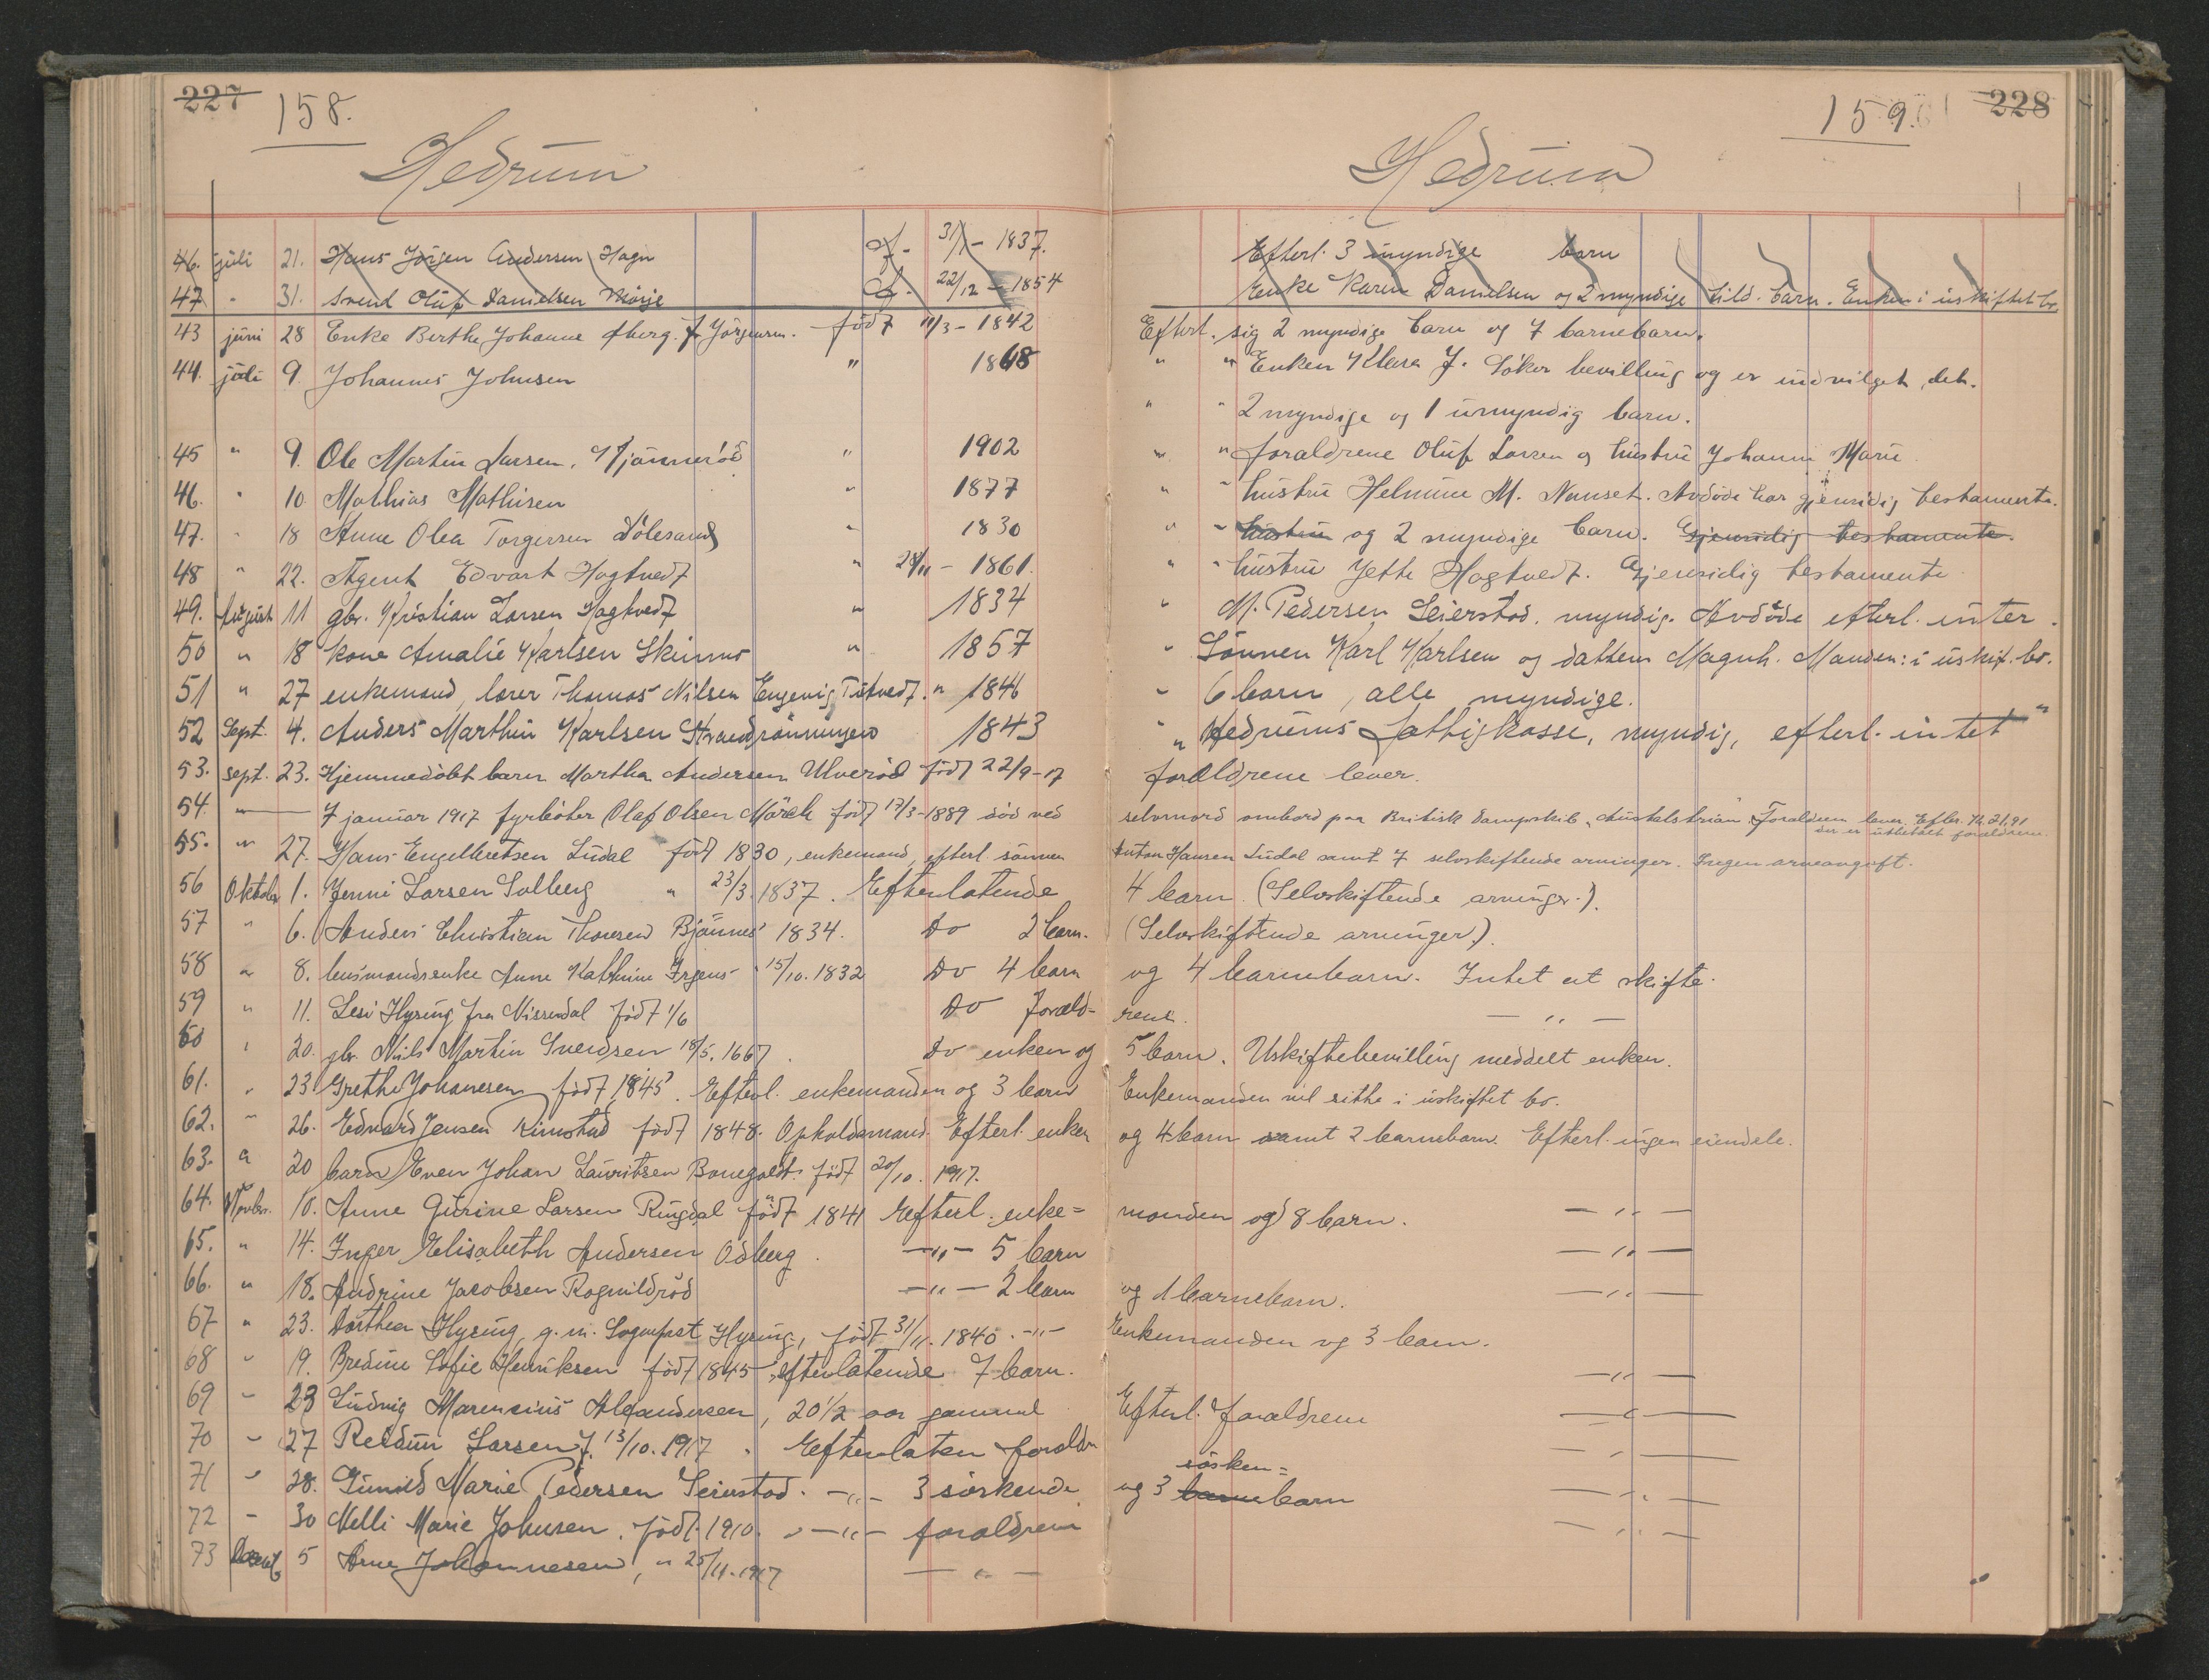 227 158.
Hedrum
46. juli 21. Hans Jørgen Andersen Hagn f. 31/1 - 1837.
47. " 31. Svend Oluf Danielsen f. 22/12 - 1854
43 juni 28 Enke Berthe Johanne født 11/3 - 1842
44. juli 9. Johannes Johnsen " 1868
45 " 9. Ole Martin Larsen, " 1902
46. " 10 Mathias Mathisen " 1877
47. " 18 Anne Olea Torgersen Dølesand " 1830
48 " 22. Agent Edvart Hagtvedt " 28/11 - 1861.
49. August 11 gbr. Kristian Larsen Hagtvedt " 1834
50 " 18 kone Amalie Karlsen Skinmo " 1857
51 " 27 enkemand, lærer Thomas Nilsen " 1846
52 Sept. 4. Anders Marthin Karlsen 1843
53. sept. 23. Hjemmedøbt barn Martha Andersen Ulverød født 22/9-17
54. " 7 januar 1917 fyrbøter Olaf Olsen Mørch født 17/3-1889 død ved
55. " 27. Hans Engelbretsen Ludal født 1830, enkemand, efterl. sønnen
56 Oktober 1. Jenni Larsen Solberg " 23/3 1837. Efterlatende
57 " 6. Anders Christian Thoresen Bjønnes 1834. Do 2 barn.
58 " 8. husmandsenke Anne Kathrine 15/10. 1832 Do 4 barn
59 " 11. Hysing fra Nissedal født 1/6 Do foræld-
60 " 20. gbr. Nils Martin Svendsen 18/5. 1667. Do enken og
61. " 23 Grethe Johansen født 1845. Efterl. enkemanden og 3 barn
62. " 26. Edvard Jensen Rimstad født 1848. Opholdsmand. Efterl. enken
63. " 20 barn Even Johan Lauritsen født 20/10. 1917.
64. Novbr. 10. Anne Gurine Larsen Ringdal født 1841 Efterl. enke=
65. " 14. Inger Elisabeth Andersen Odberg. -"- 5 barn
66. " 18. Andrine Jacobsen Rognildrød -"- 2 barn
67 " 23. Dorthea Hysing, g. m. Sogneprest Hysing, født 31/11. 1840. -"-
68 " 19. Bredine Sofie Henriksen født 1845, efterlatende 7 barn.
69 " 23 Ludvig Marensius Alexandersen, 20 1/2 aar gammel
70 " 27 Reidun Larsen f. 13/10. 1917. Efterlaten foreldr
71 " 28. Gunild Marie Pedersen Seierstad. -"- 3 søskende
72 " 30 Nelli Marie Johnsen. født. 1910. -"- foreldrene
73 5 Arne Johannesen, " 25/11. 1917 - " -
159. 228
Hedrum
Efterl. 3 myndige barn
Enke Karen Danielsen og 2 myndige barn. Enken i uskiftet bo
Efterl. sig 2 myndige barn og 7 barnebarn.
" " Enken Klara J. Søker bevilling og er indvilget det.
" " 2 myndige og 1 umyndig barn.
" " foraldrene Oluf Larsen og hustru Johanne Marie
" " hustru Helmine M. Nanset. Avdøde har gjensidig testamente.
" " hustru og 2 myndige barn. Gjensidig testamente.
" " hustru Jette Hagtvedt. Gjensidig testamente
" M. Pedersen Seierstad. myndig. Avdøde efterl. intet.
" Sønnen Karl Karlsen og datteren Magnh. Manden: i uskif. bo.
" 6 barn, alle myndige.
" Hedrums Fattigkasse, myndig, efterl. intet "
forældrene lever.
selvmord ombord paa Britisk Dampskib Foraldrene lever. Efterl. Kr. 21,91
der er utbetalt foraldrene.
Anton Hansen Ludal samt 7 selvskiftende arvinger. Ingen arveavgift.
4 barn. (Selvskiftende arvinger.).
(Selvskiftende arvinger).
og 4 barnebarn. Intet at skifte.
rene. - " -
5 barn. Uskiftebevilling meddelt enken.
Enkemanden vil sitte i uskiftet bo.
og 4 barn samt 2 barnebarn. Efterl. ingen eiendele.
manden og 8 barn. - " -
- " -
og 1 barnebarn. - " -
Enkemanden og 3 barn.
- " -
Efterl. foraldrene - " -
- " -
søsken=
og 3 barnebarn - " -
- " -